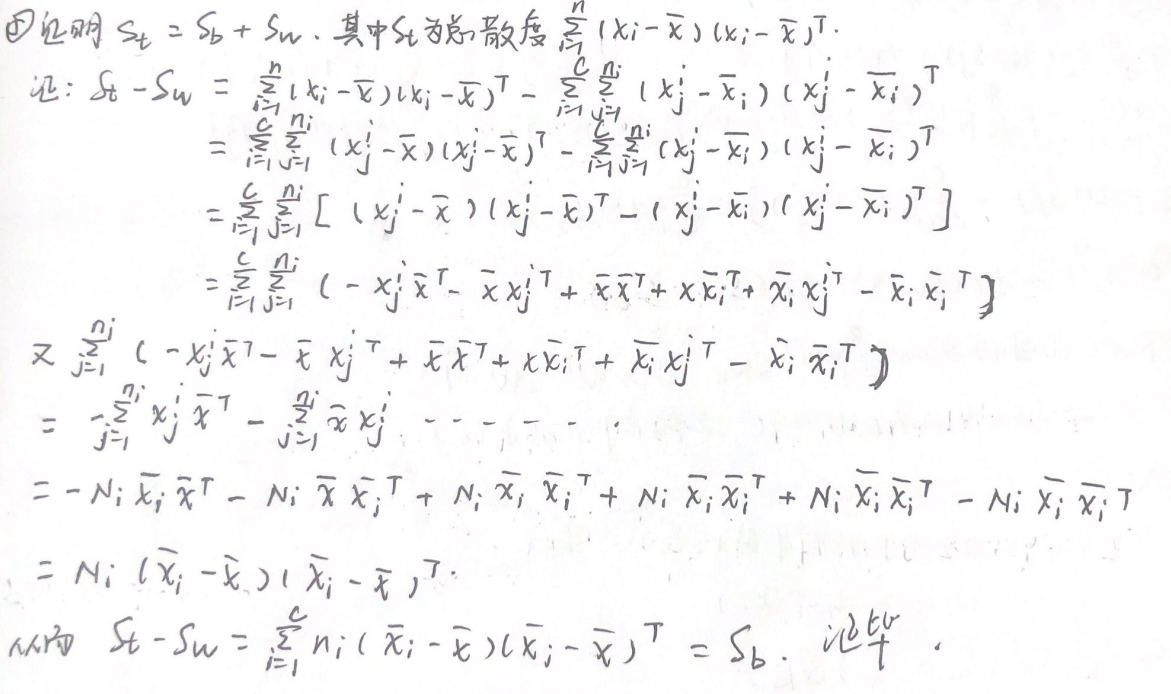 ④证明 St = Sb + Sw. 其中St为总散度 ∑_{i=1}^{n} (xi - x̄)(xi - x̄)ᵀ.
证: St - Sw = ∑_{i=1}^{n} (xi - x̄)(xi - x̄)ᵀ - ∑_{i=1}^{C} ∑_{j=1}^{ni} (x_j^i - x̄i)(x_j^i - x̄i)ᵀ
= ∑_{i=1}^{C} ∑_{j=1}^{ni} (x_j^i - x̄)(x_j^i - x̄)ᵀ - ∑_{i=1}^{C} ∑_{j=1}^{ni} (x_j^i - x̄i)(x_j^i - x̄i)ᵀ
= ∑_{i=1}^{C} ∑_{j=1}^{ni} [ (x_j^i - x̄)(x_j^i - x̄)ᵀ - (x_j^i - x̄i)(x_j^i - x̄i)ᵀ ]
= ∑_{i=1}^{C} ∑_{j=1}^{ni} ( - x_j^i x̄ᵀ - x̄ x_j^iᵀ + x̄x̄ᵀ + x x̄iᵀ + x̄i x_j^iᵀ - x̄i x̄iᵀ )
又 ∑_{j=1}^{ni} ( - x_j^i x̄ᵀ - x̄ x_j^iᵀ + x̄x̄ᵀ + x x̄iᵀ + x̄i x_j^iᵀ - x̄i x̄iᵀ )
= - ∑_{j=1}^{ni} x_j^i x̄ᵀ - ∑_{j=1}^{ni} x̄ x_j^i - - - - - - - -
= - Ni x̄i x̄ᵀ - Ni x̄ x̄iᵀ + Ni x̄i x̄iᵀ + Ni x̄i x̄iᵀ + Ni x̄i x̄iᵀ - Ni x̄i x̄iᵀ
= Ni (x̄i - x̄)(x̄i - x̄)ᵀ.
从而 St - Sw = ∑_{i=1}^{C} ni (x̄i - x̄)(x̄i - x̄)ᵀ = Sb. 证毕.